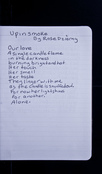 Up in smoke
By
Our love
A single candle flame
in the darkness
burning bright and hot
Her touch
Her smell
Her taste
They linger with me
as the candle is snuffed out
For now her light shines
for another.
Alone.